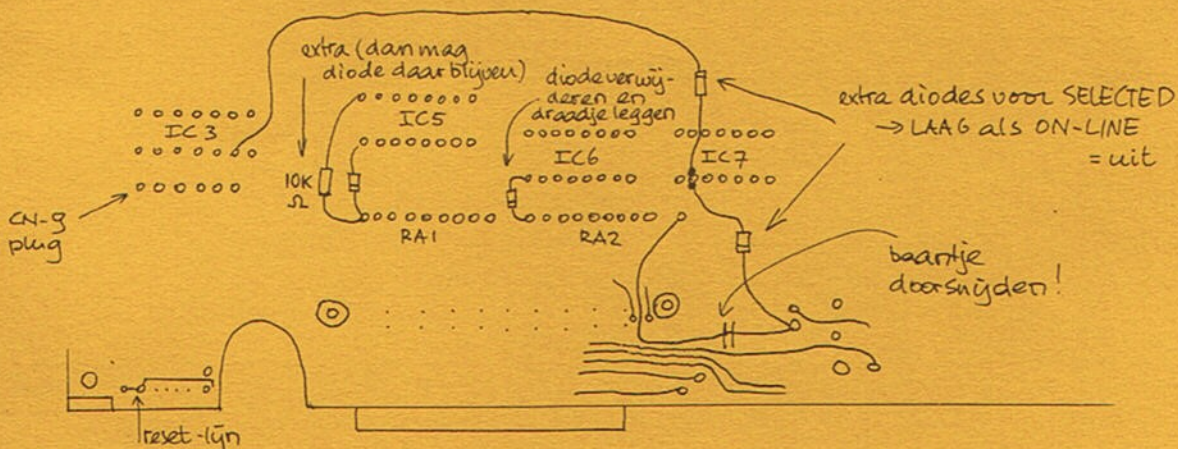 extra (dan mag
diode daar blijven)
diode verwij-
deren en
draadje leggen
extra diodes voor SELECTED
→ LAAG als ON-LINE
= uit
IC3
IC5
IC6
IC7
10K
Ω
CN-9
plug
RA1
RA2
baantje
doorsnijden!
reset-lijn